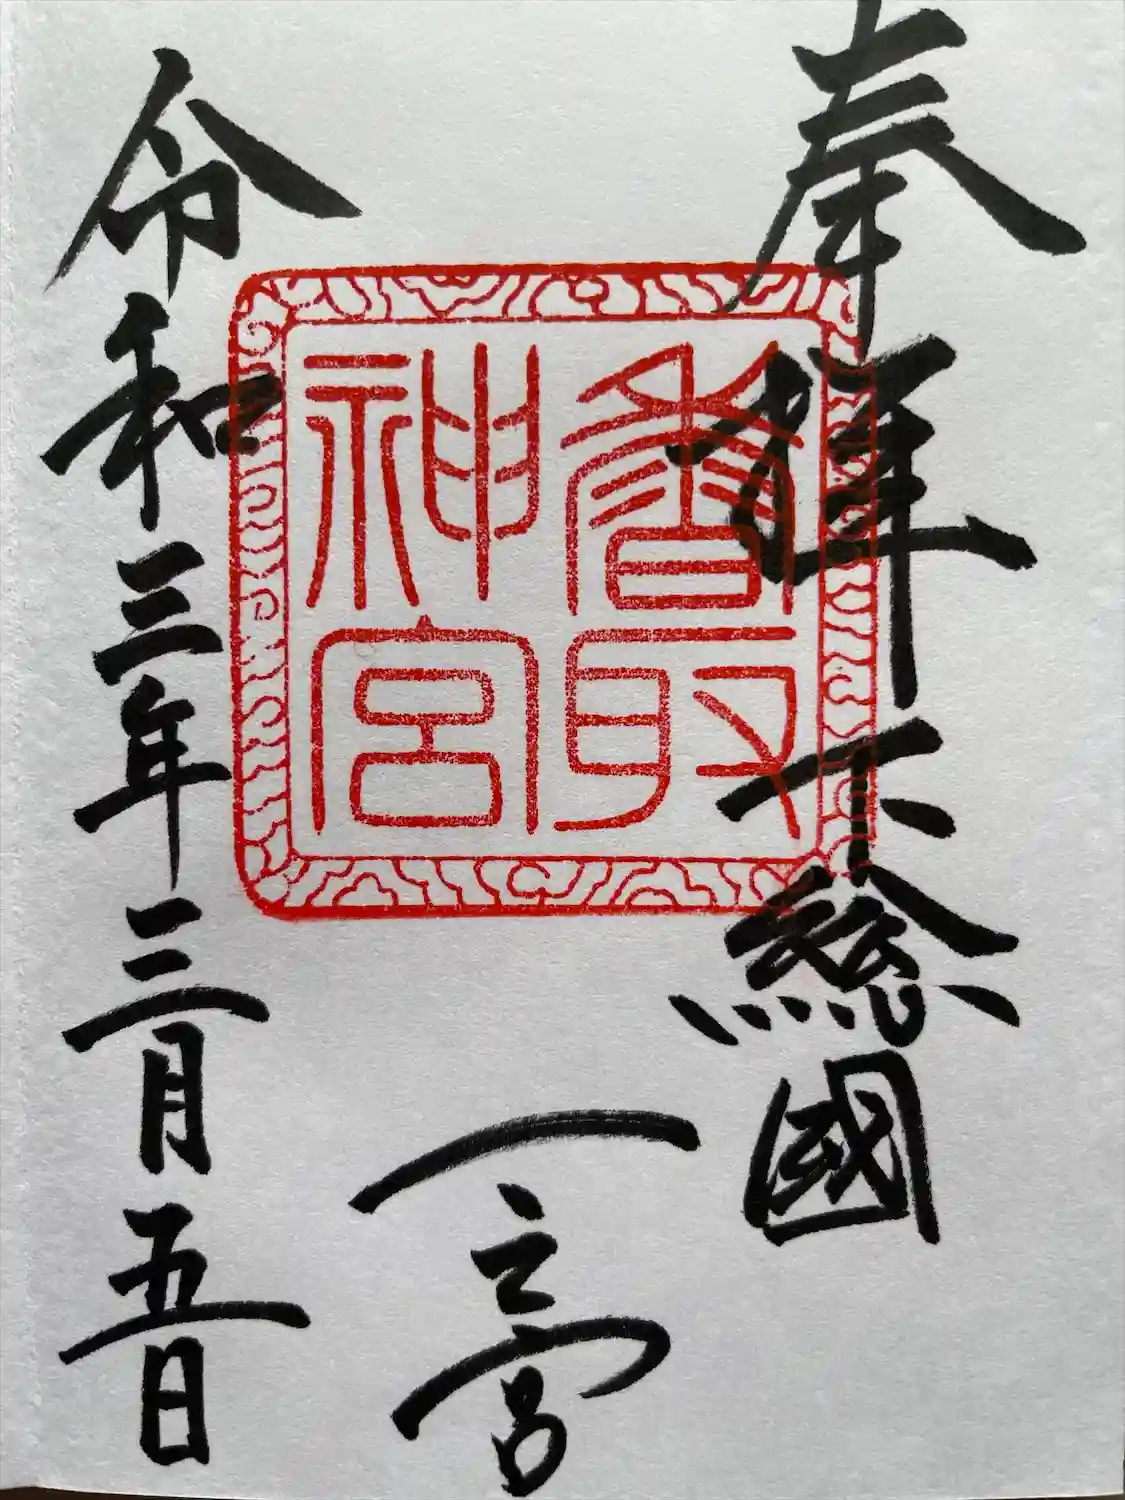 奉拝 下総國
香取
神宮
一之宮
令和三年三月五日